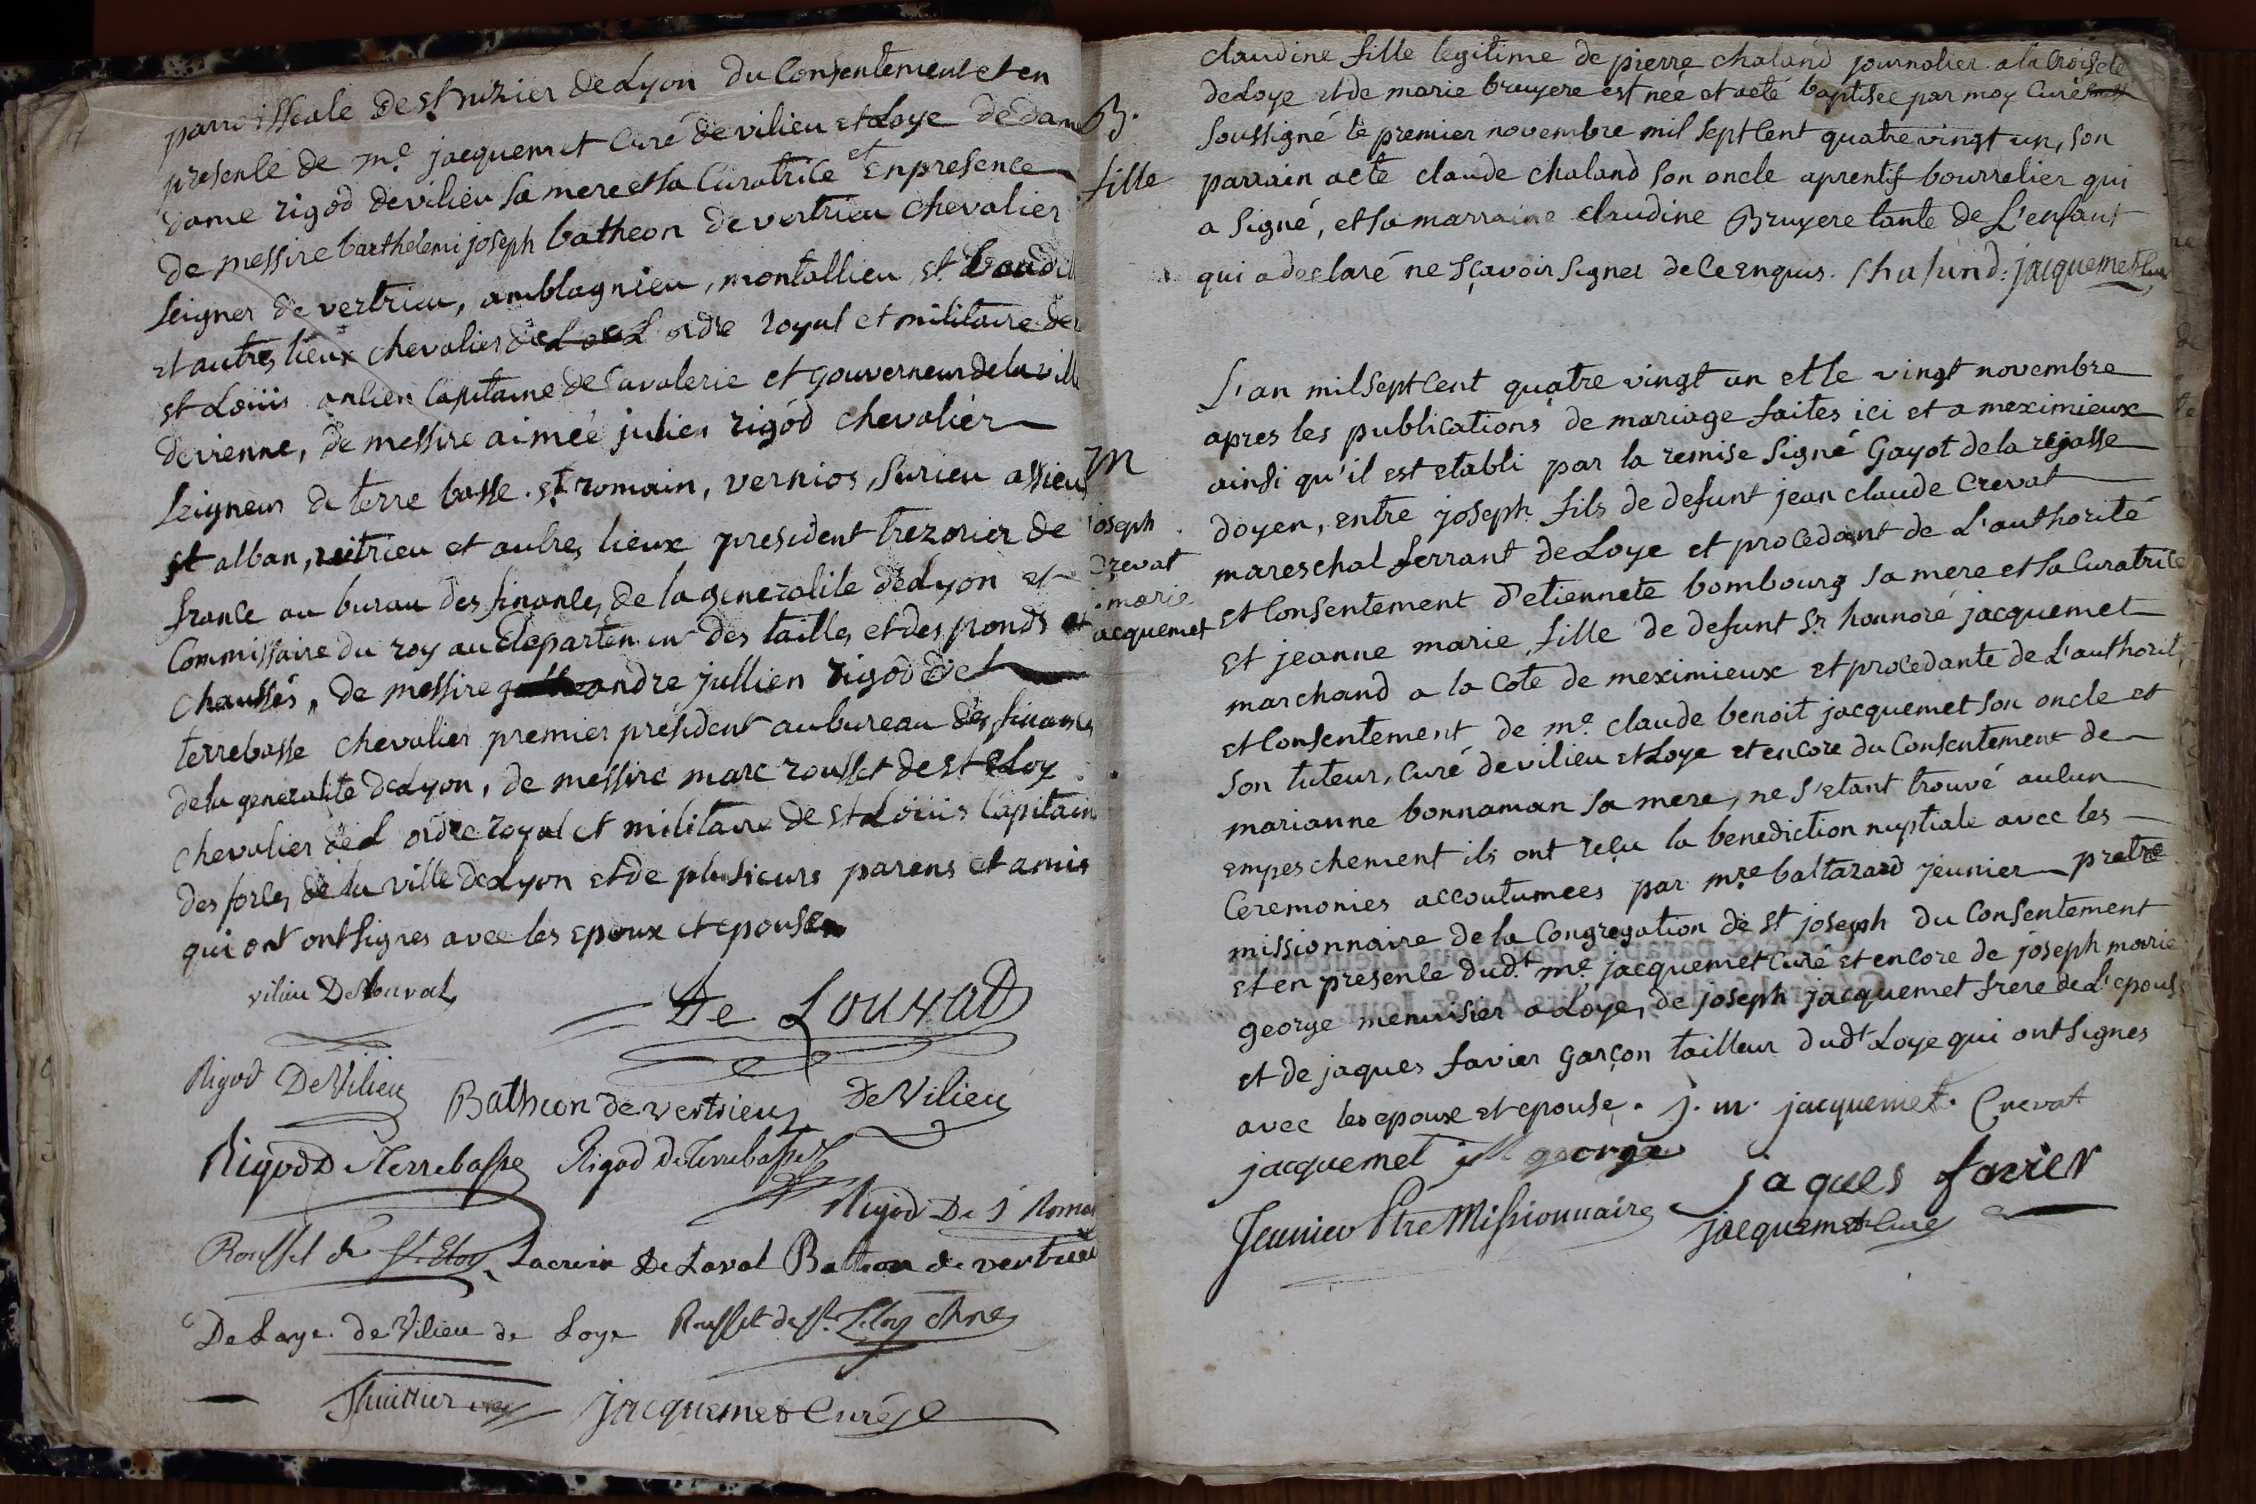 parroissiale de St nizier de Lyon du Consentement et en
presence de me jacquemet Curé de vilieu et Loye de dame
dame rigod de vilieu sa mere et sa Curatrice et En presence
de messire barthelemi joseph batheon de vertrieu chevalier
seigner de vertrieu, amblagnieu, montallieu, St
et autres lieux chevalier de L ordre royal et militaire de
st Loüis ancien Capitaine de Cavalerie et gouverneur de la ville
de vienne, de messire aimée julien rigod chevalier
seigneur de terre basse. St romain, vernios, Surieu assieu
st alban, et autres lieux president trezorier de
france au burau des finances de la generalite de Lyon et
Commissaire du roy au departement des tailles et des ponds et
chaussés, de messire andre jullien rigod de
terrebasse chevalier premier président au bureau des finances
de la generalité de Lyon, de messire marc rousset de st Eloy
chevalier de L ordre royal et militaire de st Loüis Capitaine
des portes de la ville de Lyon et de plusieurs parens et amis
qui ont ont signes avec les epoux et epouse
vilieu De Louvat
De Louvat
Rigod De Vilieu
Batheon de vertrieu De Vilieu
Rigod De Terrebasse Rigod De Terrebasse
Rigod De St Romai
Rousset de St Eloy Lacroix de Laval Batheon de vertrieu
De Laye de Vilieu de Loye Rousset de St Eloy
jacquemet Curé
B.
fille
claudine fille legitime de pierre chaland journalier a la Croisete
de Loye et de marie bruyere est née et a eté baptisée par moy Curé
soussigné le premier novembre mil sept Cent quatre vingt un, son
parrain a eté claude chaland son oncle aprentif bourrelier qui
a signé, et sa marraine claudine Bruyere tante de L'enfant
qui a declaré ne sçavoir signer de Ce enquis. Chaland. jacquemet Curé
M
joseph
Crevat
marie
jacquemet
L'an mil sept Cent quatre vingt un et le vingt novembre
apres les publications de mariage faites ici et a meximieux
ainsi qu'il est etabli par la remise signé Gayot de la rejasse
doyen, entre joseph fils de defunt jean claude Crevat
mareschal ferrant de Loye et procedant de L'authorité
et Consentement d'etiennete bombourg sa mere et sa Curatrice
et jeanne marie fille de defunt sr honnoré jacquemet
marchand a la Cote de meximieux et procedante de L'authorité
et Consentement de me claude benoit jacquemet son oncle et
son tuteur, Curé de vilieu et Loye et encore du Consentement de
marianne bonnaman sa mere, ne s'etant trouvé aucun
empeschement ils ont reçu la benediction nuptiale avec les
Ceremonies accoutumees par mre baltazard jeunier pretre
missionnaire de la Congregation de st joseph du Consentement
et en presence dudt me jacquemet Curé et encore de joseph marie
george menuisier a Loye, de joseph jacquemet frere de L'epouse
et de jaques favier garçon tailleur dudt Loye qui ont signes
avec les epoux et epouse. j. m. jacquemet. Crevat
jacquemet j M george
jaques favier
Jeunier Ptre Missionnaire jacquemet Curé